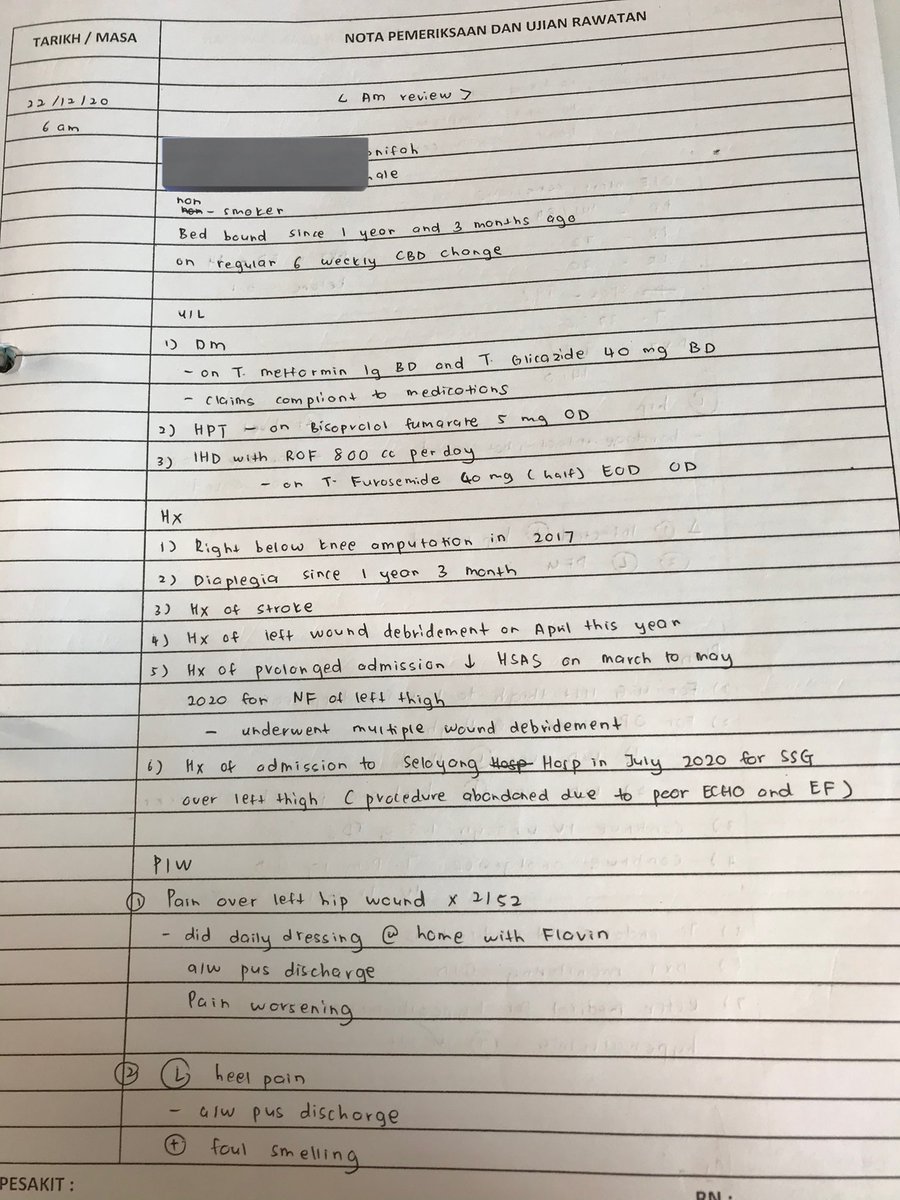 TARIKH / MASA
NOTA PEMERIKSAAN DAN UJIAN RAWATAN
22/12/20
< Am review >
6 am
onifoh
ale
non
non - smoker
Bed bound since 1 year and 3 months ago
on regular 6 weekly CBD change
U/L
1) DM
- on T. metformin 1g BD and T. Glicazide 40 mg BD
- claims compliant to medications
2) HPT - on Bisoprolol fumarate 5 mg OD
3) IHD with ROF 800 cc per day
- on T. Furosemide 40 mg (half) EOD OD
Hx
1) Right below knee amputation in 2017
2) Diaplegia since 1 year 3 month
3) Hx of stroke
4) Hx of left wound debridement on April this year
5) Hx of prolonged admission ↓ HSAS on march to may
2020 for NF of left thigh
- underwent multiple wound debridement
6) Hx of admission to Selayang Hosp Hosp in July 2020 for SSG
over left thigh ( procedure abandoned due to poor ECHO and EF )
P/W
① Pain over left hip wound x 2/52
- did daily dressing @ home with Flavin
a/w pus discharge
Pain worsening
② Ⓛ heel pain
- a/w pus discharge
⊕ foul smelling
PESAKIT :
RN :